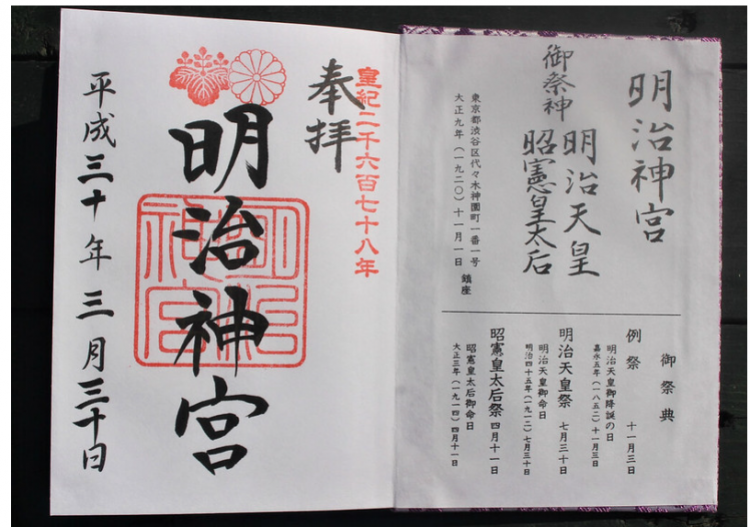 明治神宮
御祭神
明治天皇
昭憲皇太后
東京都渋谷区代々木神園町一番一号
大正九年(一九二〇)十一月一日 鎮座
御祭典
例祭 十一月三日
明治天皇御降誕の日
嘉永五年(一八五二)十一月三日
明治天皇祭 七月三十日
明治天皇御命日
明治四十五年(一九一二)七月三十日
昭憲皇太后祭 四月十一日
昭憲皇太后御命日
大正三年(一九一四)四月十一日
皇紀二千六百七十八年
奉拝
明治神宮
明治神宮
平成三十年三月三十日